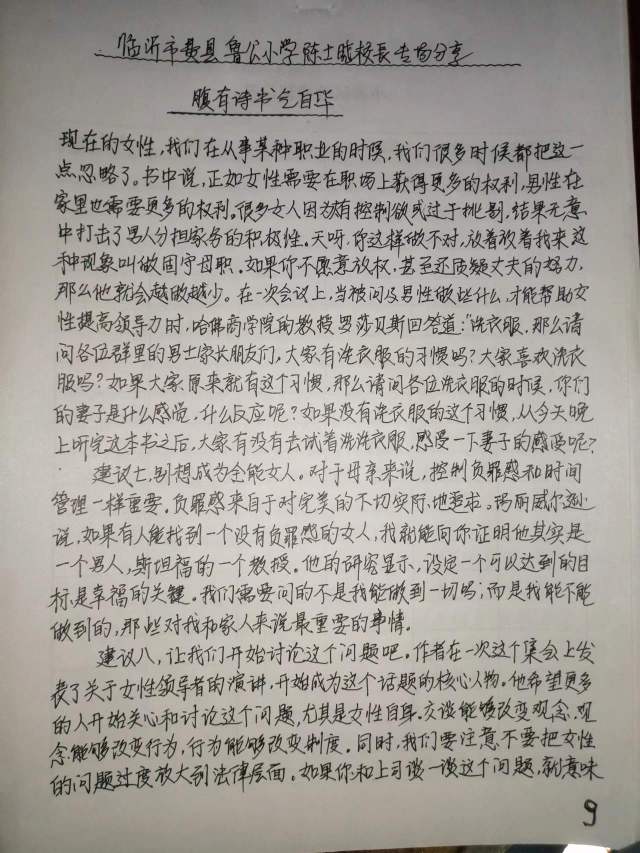 临沂市费县鲁公小学陈士 校长专场分享
腹有诗书气自华
现在的女性，我们在从事某种职业的时候，我们很多时候都把这一
点忽略了。书中说，正如女性需要在职场上获得更多的权利，男性在
家里也需要更多的权利。很多女人因为有控制欲或过于挑剔，结果无意
中打击了男人分担家务的积极性。天呀，你这样做不对，放着放着我来这
种现象叫做固守母职。如果你不愿意放权，甚至还质疑丈夫的努力，
那么他就会越做越少。在一次会议上，当被问及男性做些什么，才能帮助女
性提高领导力时，哈佛商学院的教授罗莎贝斯回答道："洗衣服，那么请
问各位群里的男士家长朋友们，大家有洗衣服的习惯吗？大家喜欢洗衣
服吗？如果大家原来就有这个习惯，那么请问各位洗衣服的时候，你们
的妻子是什么感觉，什么反应呢？如果没有洗衣服的这个习惯，从今天晚
上听完这本书之后，大家有没有去试着洗洗衣服，感受一下妻子的感受呢？
建议七，别想成为全能女人。对于母亲来说，控制负罪感和时间
管理一样重要。负罪感来自于对完美的不切实际地追求。玛丽威尔逊
说，如果有人能找到一个没有负罪感的女人，我就能向你证明他其实是
一个男人，斯坦福的一个教授。他的研究显示，设定一个可以达到的目
标是幸福的关键。我们需要问的不是我能做到一切吗；而是我能不能
做到的，那些对我和家人来说最重要的事情。
建议八，让我们开始讨论这个问题吧。作者在一次这个集会上发
表了关于女性领导者的演讲，开始成为这个话题的核心人物。他希望更多
的人开始关心和讨论这个问题，尤其是女性自身。交谈能够改变观念，观
念能够改变行为，行为能够改变制度。同时，我们要注意不要把女性
的问题过度放大到法律层面。如果你和上司谈一谈这个问题，就意味
9